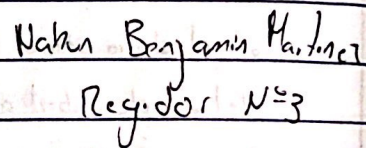 Nahun Benjamin Martinez
Regidor Nº3